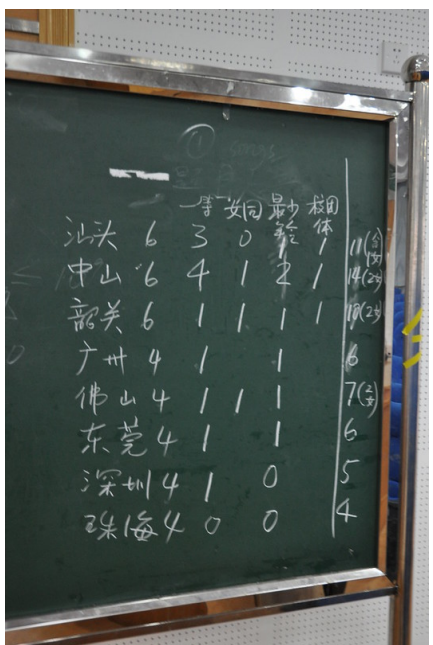 ①
第一 女团 最少年龄 校团体
汕头 6 3 0 1 1 11
中山 6 4 1 2 1 14(2女)
韶关 6 1 1 1 1 10(2女)
广州 4 1 1 6
佛山 4 1 1 1 7(2女)
东莞 4 1 1 6
深圳 4 1 0 5
珠海 4 0 0 4